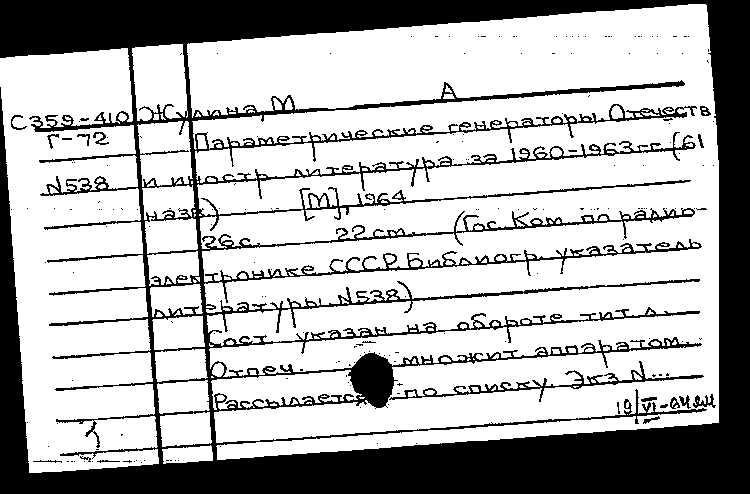 С359-410 Жулина, М А
Г-72 Параметрические генераторы. Отечеств.
N538 и иностр литература за 1960-1963гг (61
назв.) [М], 1964
26с. 22 см. (Гос. Ком. по радио-
электронике СССР. Библиогр. указатель
литературы. N538)
Сост указан на обороте тит. л.
Отпеч. множит. аппаратом.
Рассылается по списку. Экз N...
19/VI-
3